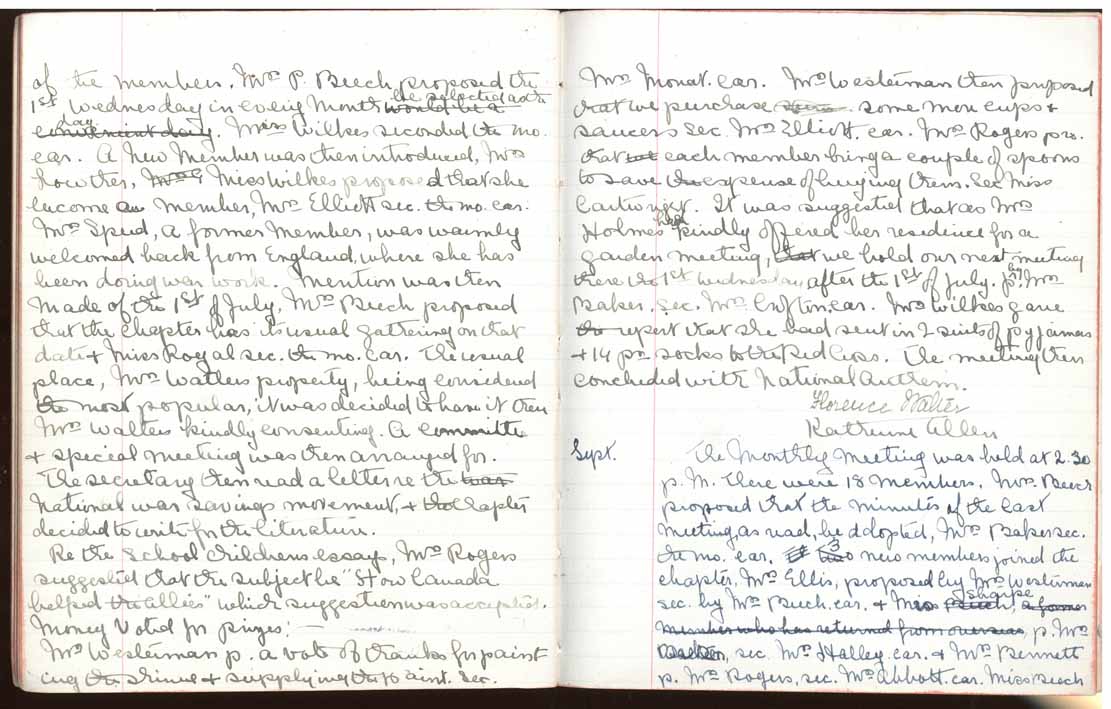 of the members. Mrs P. Beech proposed the
be selected as the
1st Wednesday in every Month would be a
day
convenient day. Miss Wilkes seconded the mo.
car. A New Member was then introduced, Mrs
Lowther, Miss Wilkes proposed that she
become a Member, Mrs Elliott sec. the mo. car.
Mrs Speed, a former Member, was warmly
welcomed back from England, where she has
been doing war work. Mention was then
made of the 1st of July, Mrs Beech proposed
that the Chapter has its usual gathering on that
date & Miss Royal sec. the mo. car. The usual
place, Mrs Walters property, being considered
the most popular, it was decided to have it there
Mrs Walters kindly consenting. A committee
& special meeting was then arranged for.
The secretary then read a letter re the war
National war savings movement, & the Chapter
decided to write for the literature.
Re the School Childrens essays, Mrs Rogers
suggested that the subject be "How Canada
helped the allies" which suggestion was accepted.
Money Voted for prizes:
Mrs Westerman p. a vote of thanks for paint
ing the shrine & supplying the paint. Sec.
Mrs Monat. car. Mrs Westerman then proposed
that we purchase some more cups &
saucers Sec. Mrs Elliott. car. Mrs Rogers pro.
that each member bring a couple of spoons
to save the expense of buying them. Sec Miss
Cartwright. It was suggested that as Mrs
has
Holmes kindly offered her residence for a
garden meeting, that we hold our next meeting
there the 1st Wednesday, after the 1st of July. p. by Mrs
Baker. sec. Mrs Crofton. car. Mrs Wilkes gave
the report that she had sent in 2 suits of pyjamas
& 14 pr socks to the Red Cross. The meeting then
concluded with National Anthem.
Florence Walter
Katherine Allen
Sept. The Monthly Meeting was held at 2.30
p.M. There were 18 members. Mrs Beech
proposed that the minutes of the last
meeting as read, be adopted, Mrs Baker sec.
3
the mo. car. two new members joined the
chapter, Mrs Ellis, proposed by Mrs Westerman
Sharpe
sec. by Mrs Beech. car. & Miss Beech, a former
member who has returned from overseas, p. Mrs
Baker, sec. Mrs Halley. car. & Mrs Bennett
p. Mrs Rogers, sec. Mrs Abbott. car. Miss Beech